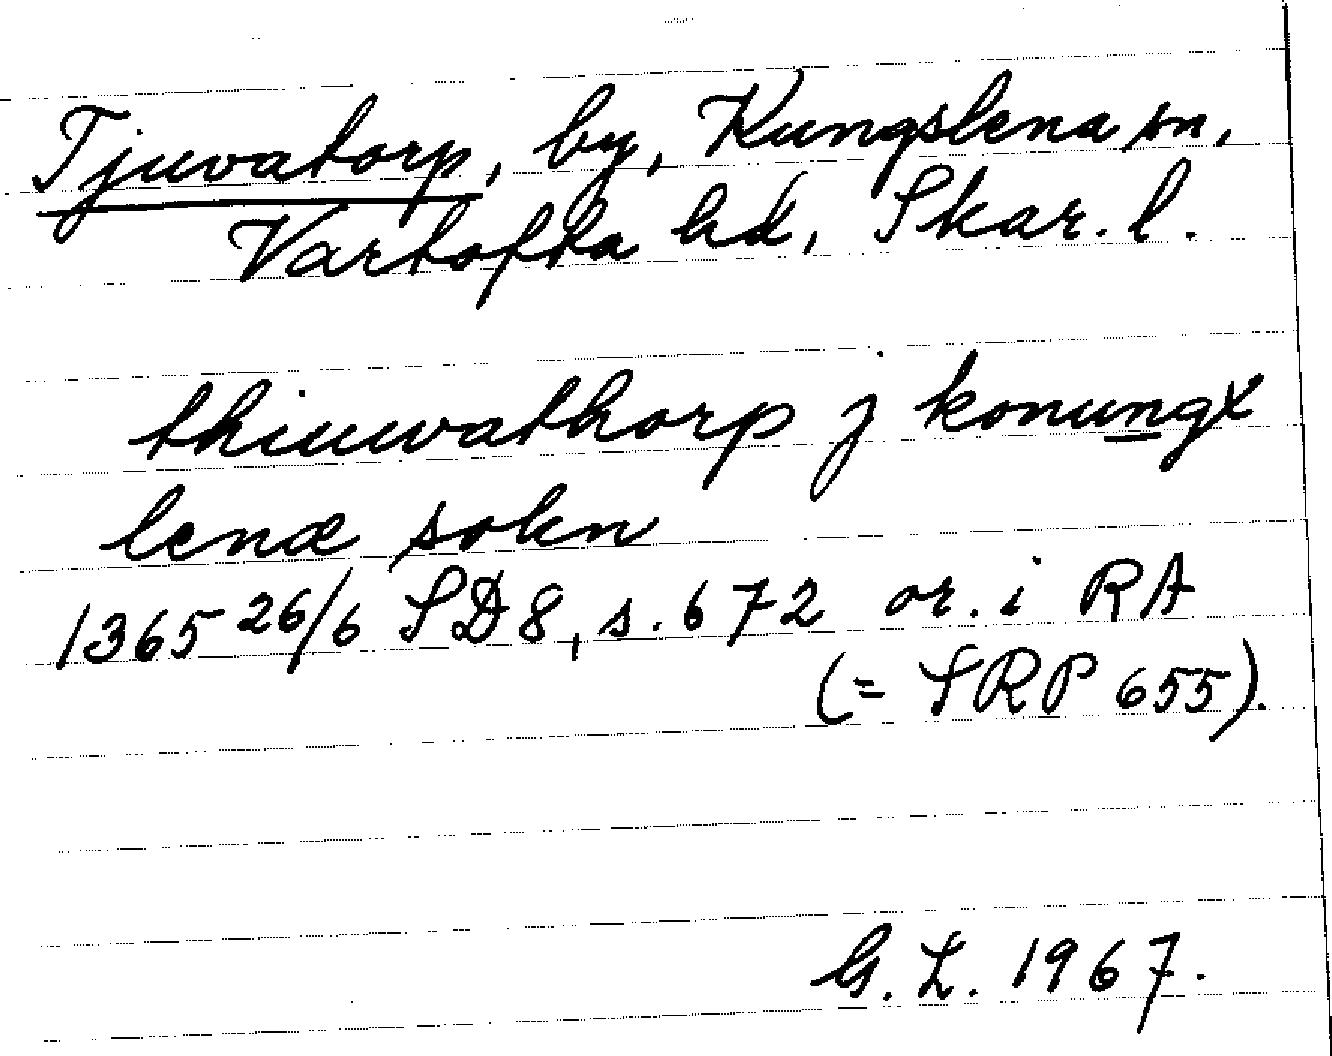 Tjuvatorp, by, Kungslena sn,
Vartofta hd, Skar. l.
thiuwathorp j konungx
lenæ sokn
1365 26/6 SD 8, s. 672 or. i RA
(= SRP 655).
G. L. 1967.